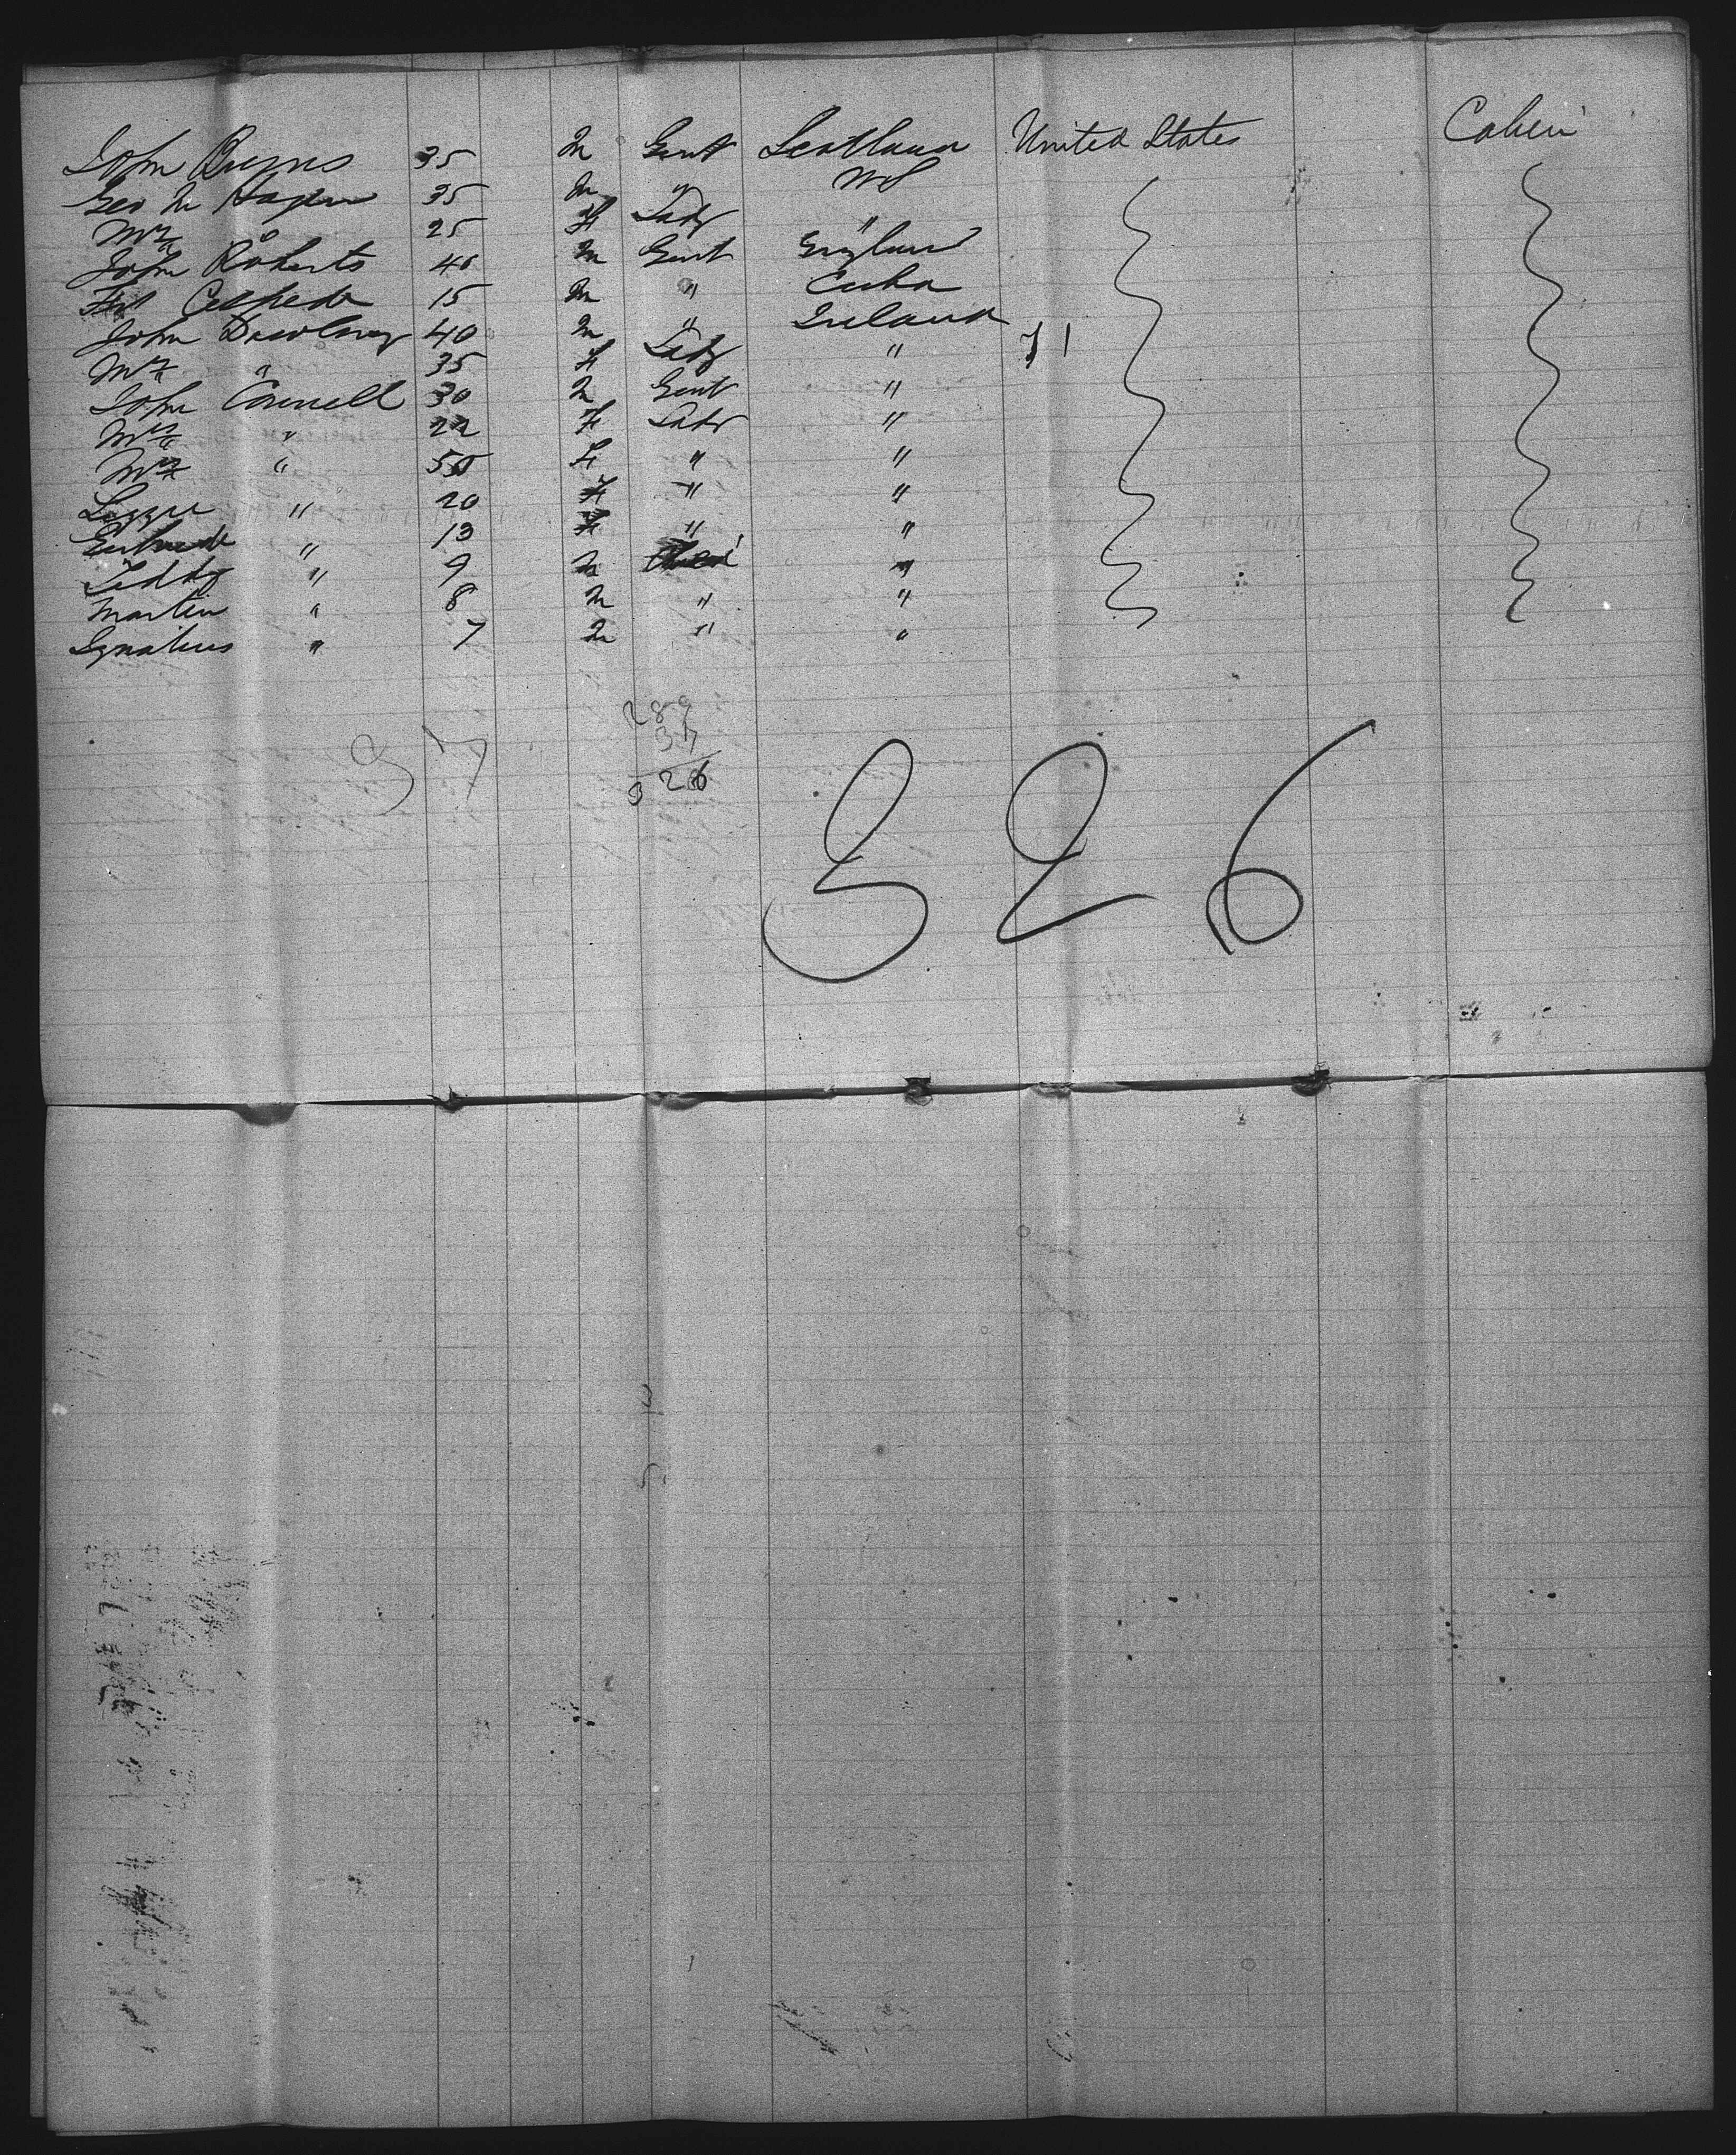 John Burns 35 M Gent Scotland United States Cabin
Geo M Hagen 35 M " US
Mrs " 25 F Lady "
John Roberts 40 M Gent England
Cespede 15 M " Cuba
John Dowling 40 M " Ireland
Mrs " 35 F Lady " 11
John Connell 30 M Gent "
Mrs " 22 F Lady "
Mrs " 50 F " "
Lizzie " 20 F " "
Gertrude " 13 F " "
Teddy " 9 M "
Martin " 8 M " "
Ignatius " 7 M " "
289
37
326
37
326